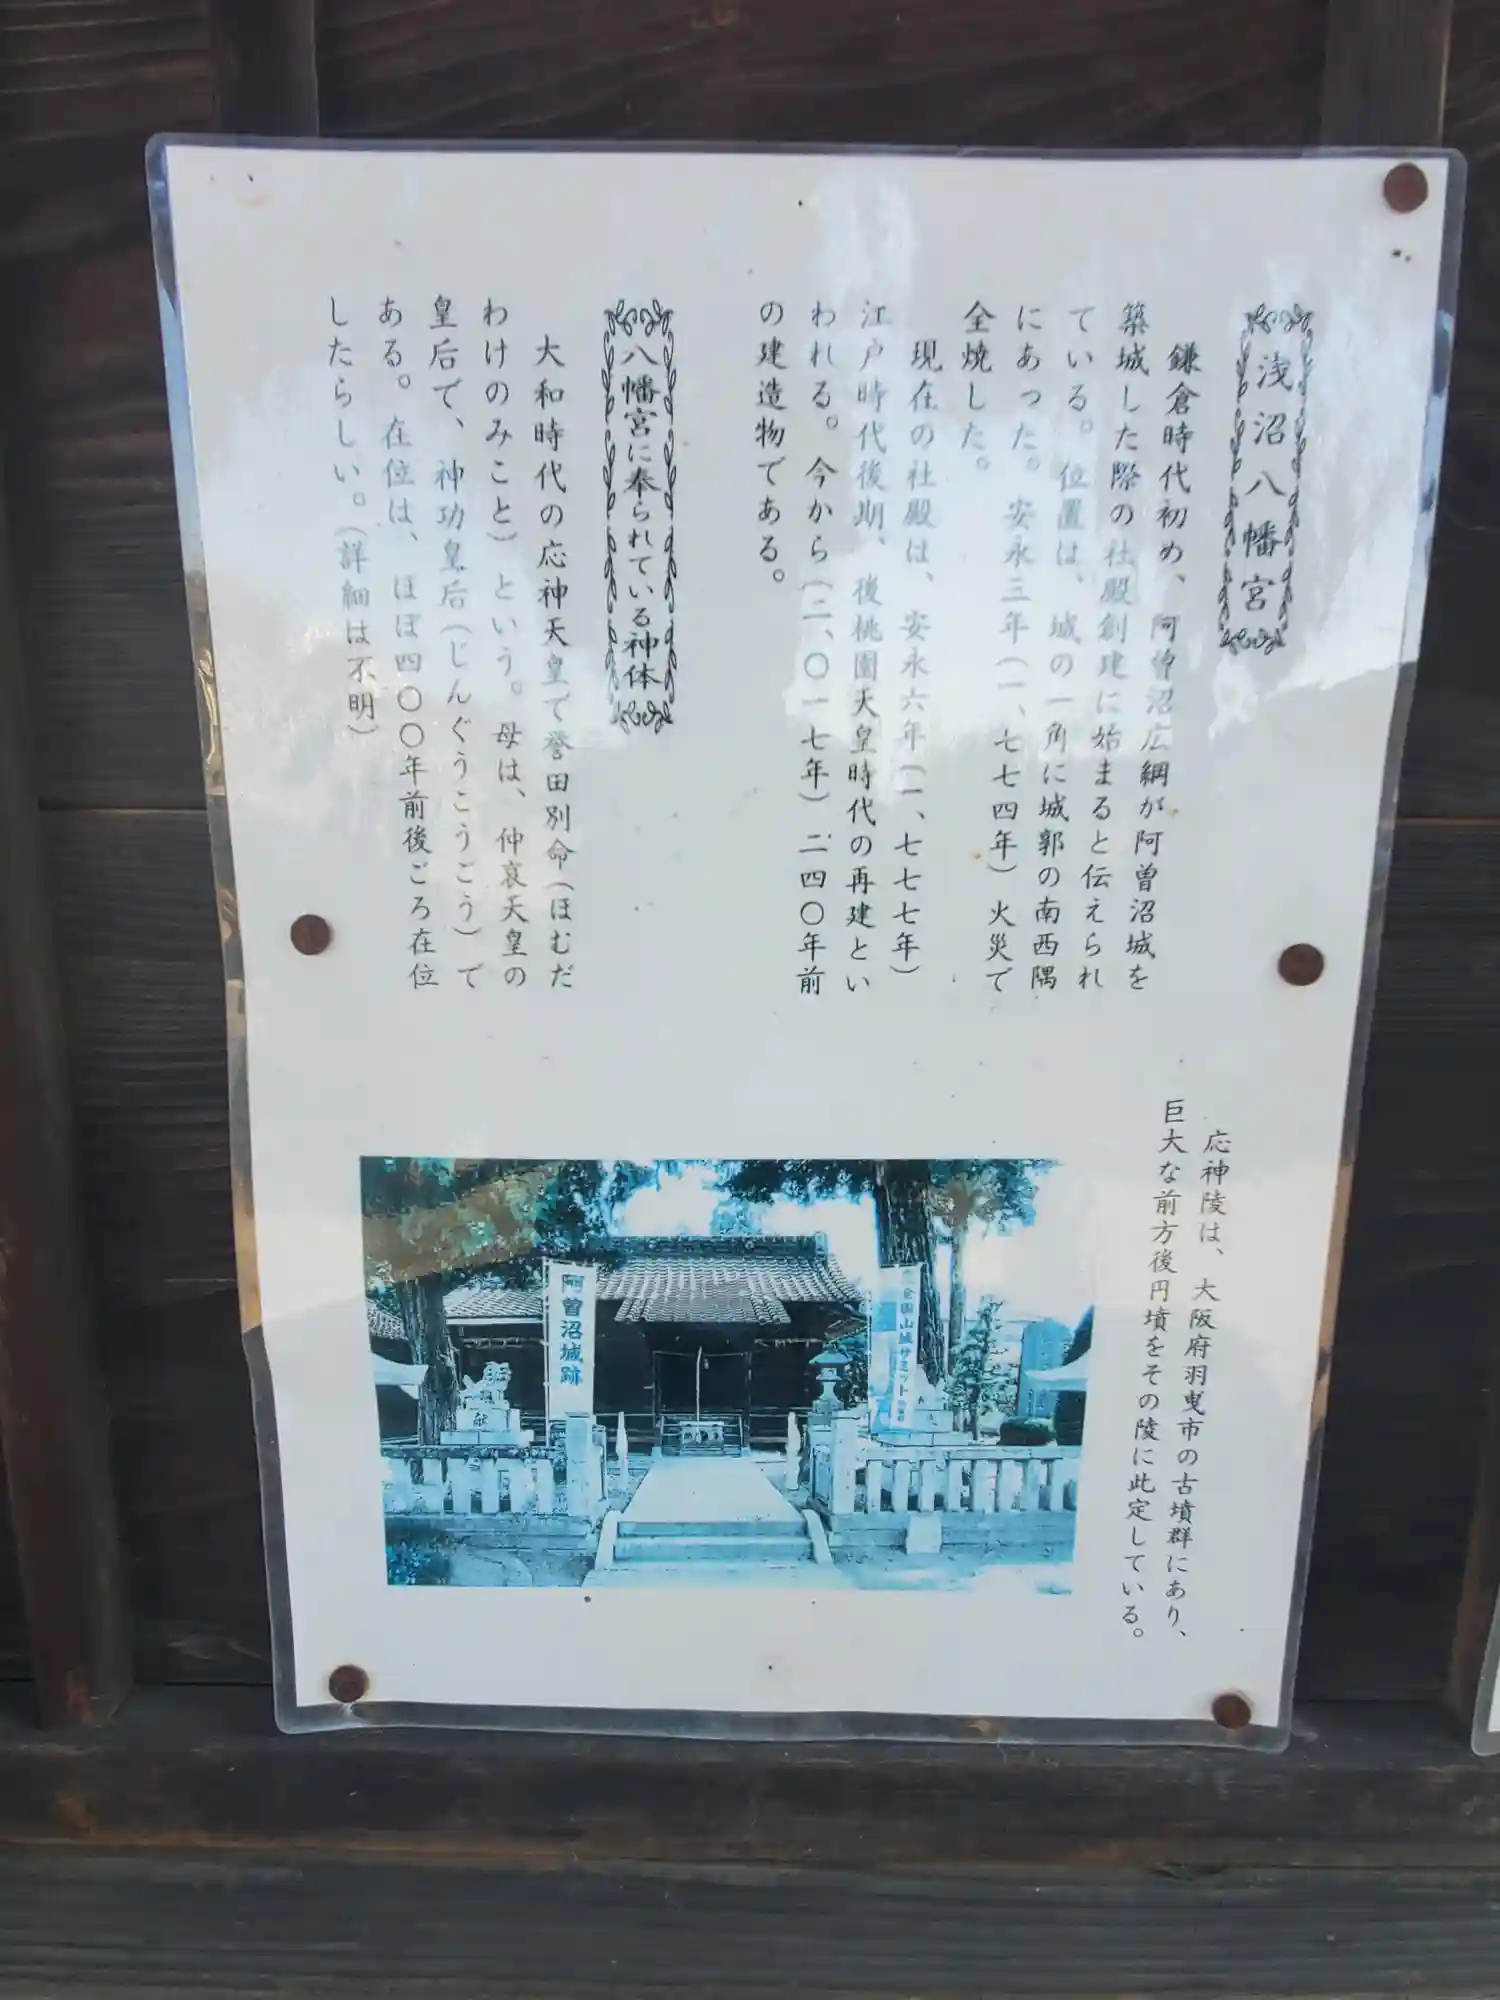 浅沼八幡宮
鎌倉時代初め、阿曽沼広綱が阿曽沼城を
築城した際の社殿創建に始まると伝えられ
ている。位置は、城の一角に城郭の南西隅
にあった。安永三年(一、七七四年)火災で
全焼した。
現在の社殿は、安永六年(一、七七七年)
江戸時代後期、後桃園天皇時代の再建とい
われる。今から(二、〇一七年)二四〇年前
の建造物である。
八幡宮に奉られている神体
大和時代の応神天皇で誉田別命(ほむだ
わけのみこと)という。母は、仲哀天皇の
皇后で、神功皇后(じんぐうこうごう)で
ある。在位は、ほぼ四〇〇年前後ごろ在位
したらしい。(詳細は不明)
応神陵は、大阪府羽曳市の古墳群にあり、
巨大な前方後円墳をその陵に此定している。
阿曽沼城跡
全国山城サミット
献